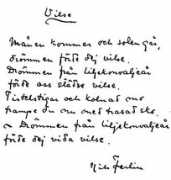 Vilse
Månen kommer och solen går,
drömmen förde dej vilse.
Drömmen från liljekonvaljeår
förde oss städse vilse.
Tistelstigar och kolnad mo
trampe du med trasad sko,
– Drömmen från liljekonvaljeår
förde dej vida vilse.
Nils Ferlin